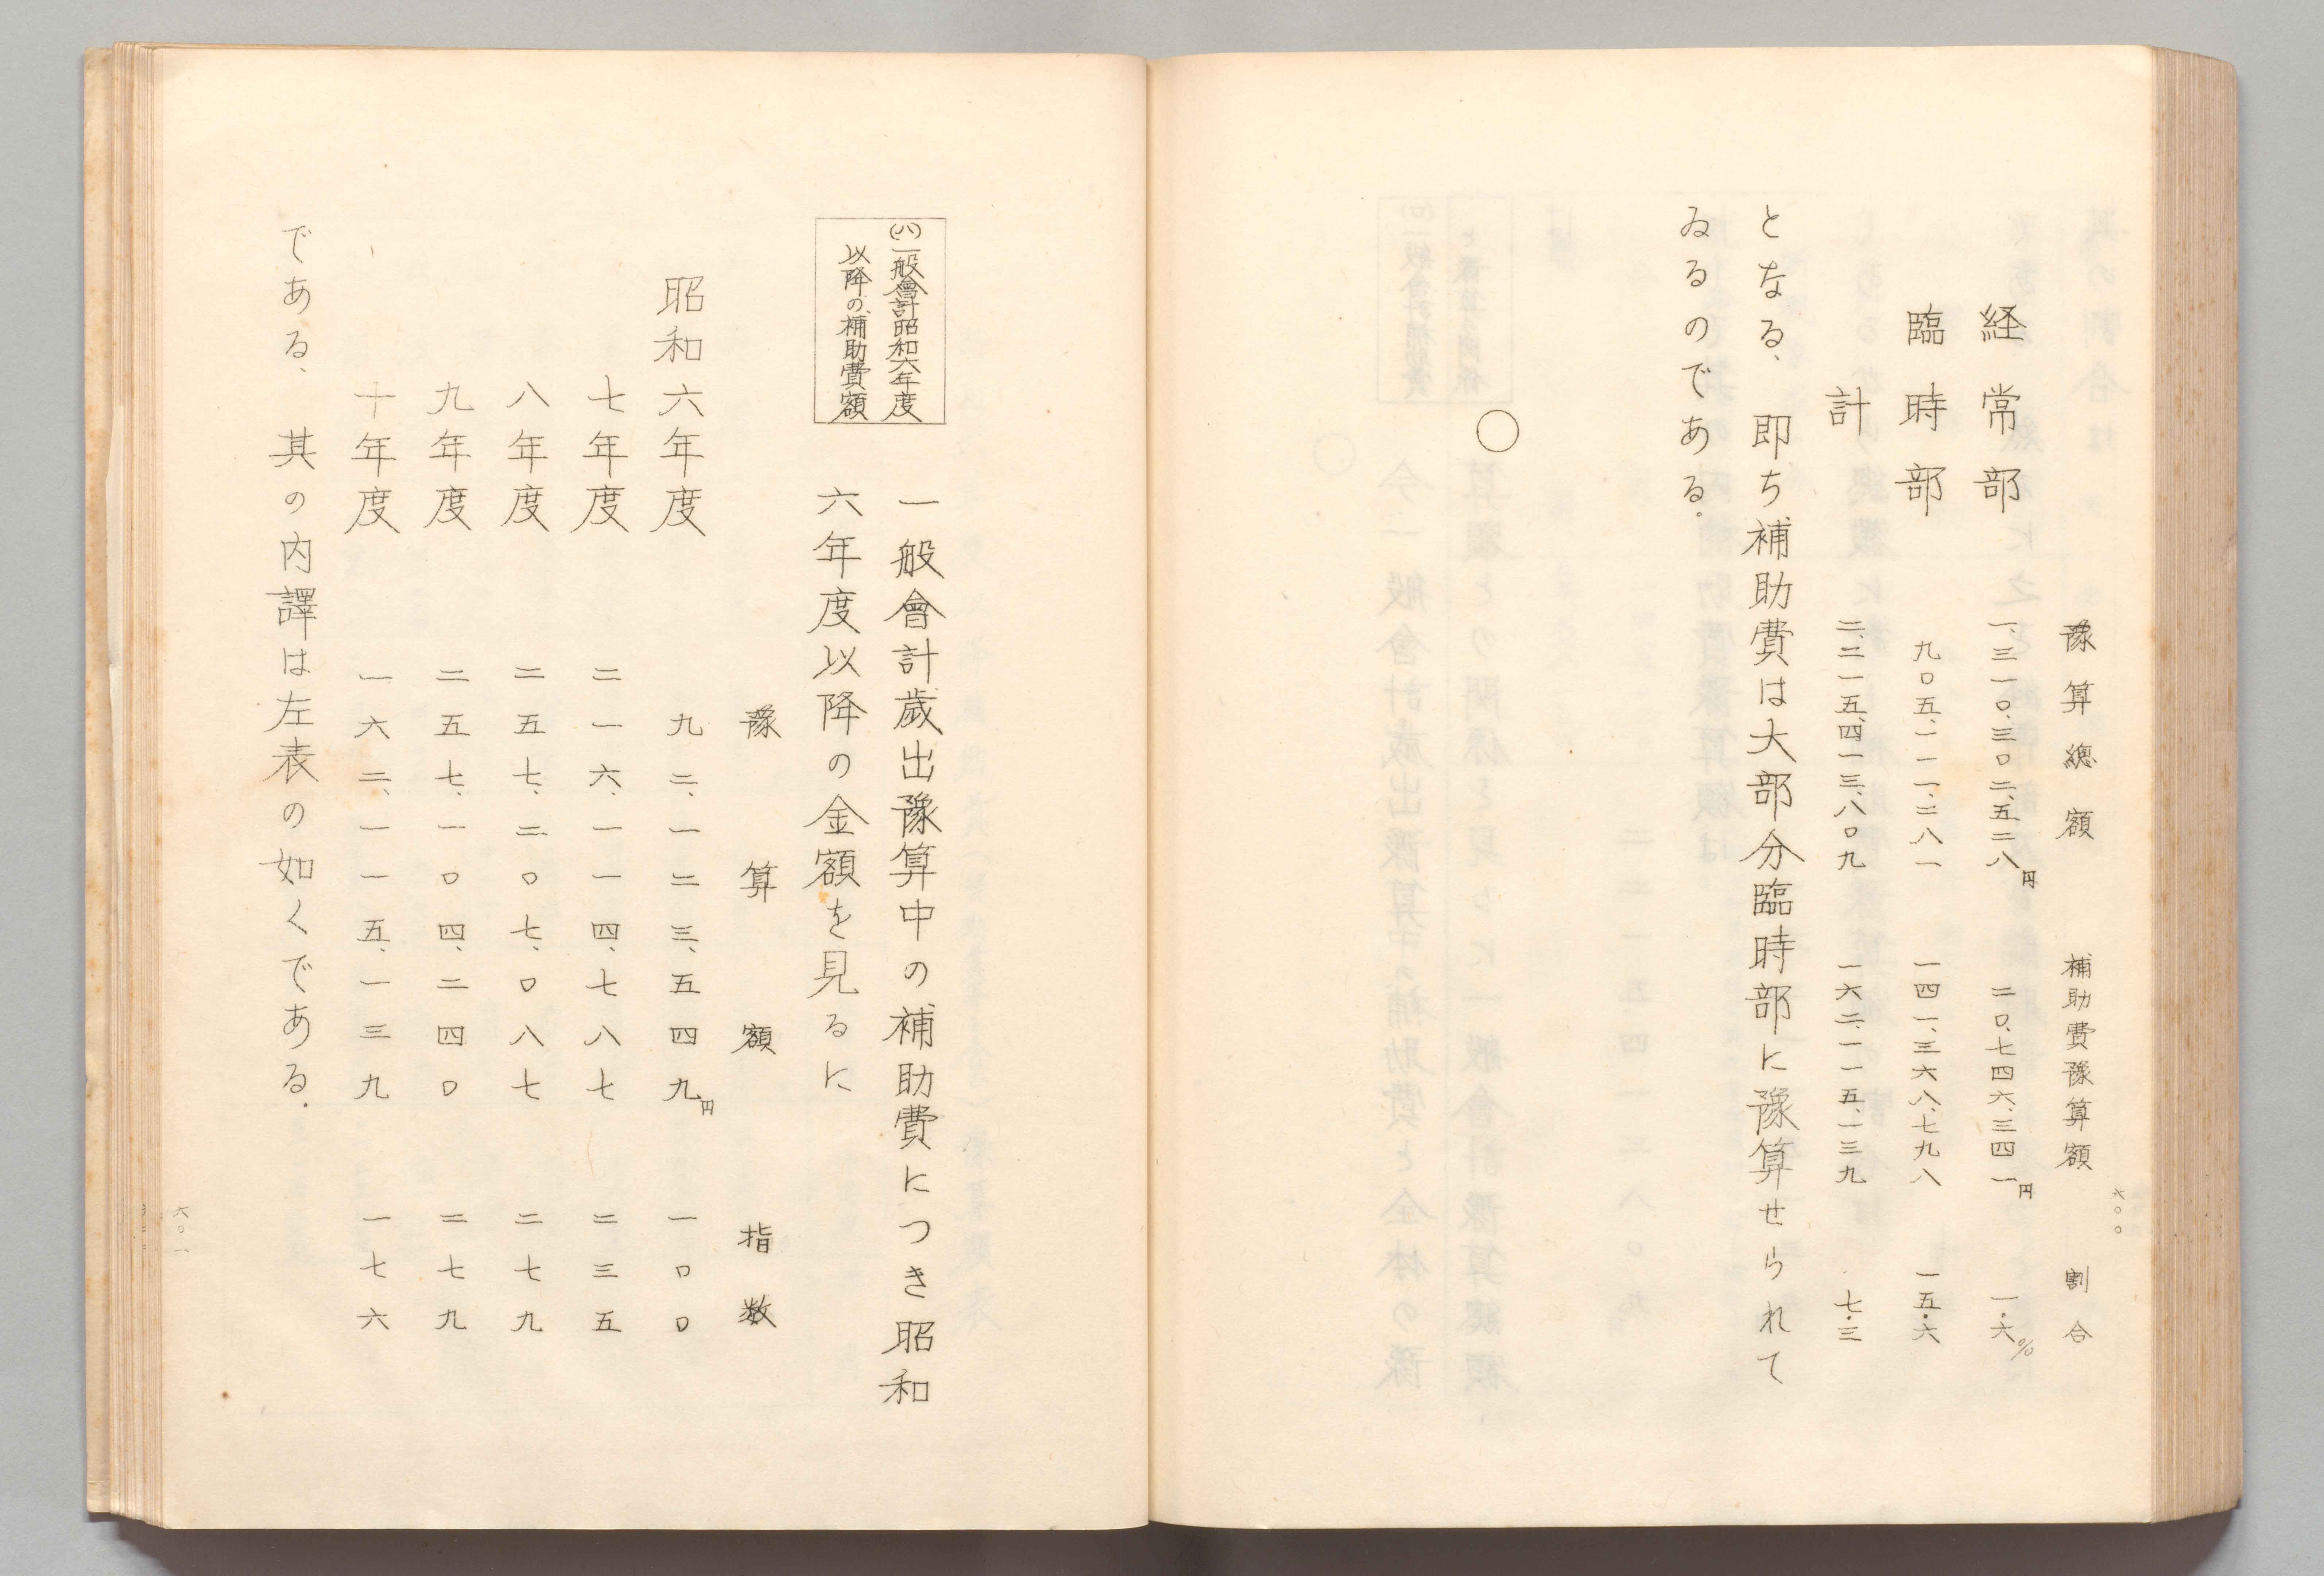 六〇〇
豫算總額　補助費豫算額　割合
経常部　一、三一〇、三〇二、五二八円　二〇、七四六、三四一円　一・六%
臨時部　九〇五、一一一、二八一　一四一、三六八、七九八　一五・六
計　二、二一五、四一三、八〇九　一六二、一一五、一三九　七・三
となる、即ち補助費は大部分臨時部に豫算せられて
ゐるのである。
〇
(ハ)一般會計昭和六年度
以降の補助費額
一般會計歲出豫算中の補助費につき昭和
六年度以降の金額を見るに
豫算額　指数
昭和六年度　九二、一二三、五四九円　一〇〇
七年度　二一六、一一四、七八七　二三五
八年度　二五七、二〇七、〇八七　二七九
九年度　二五七、一〇四、二四〇　二七九
十年度　一六二、一一五、一三九　一七六
である、其の内譯は左表の如くである.
六〇一